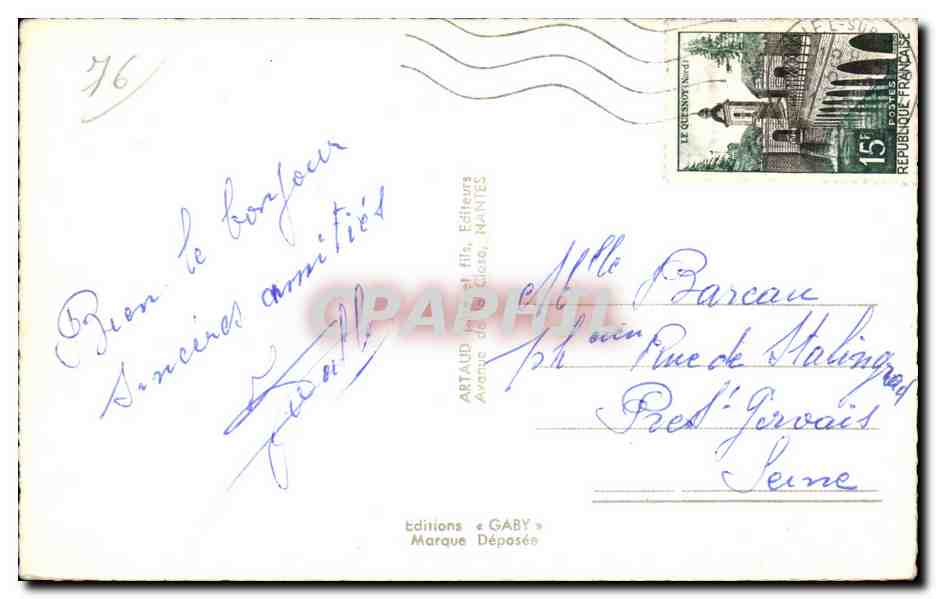 76
Bien le bonjour
Sincères amitiés
ARTAUD et fils, Editeurs
Avenue de la Close, NANTES
CPAPHIL
LE QUESNOY (Nord)
15F
POSTES
REPUBLIQUE FRANÇAISE
Mlle Barcau
phcien Rue de Stalingrad
Pré St Gervais
Seine
Editions « GABY »
Marque Déposée